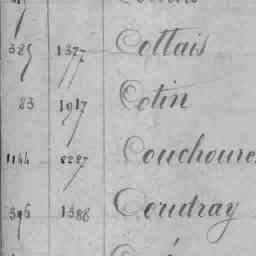 385 1377 Cottais
83 1917 Cotin
1144 2287 Couchoure
396 1388 Coudray